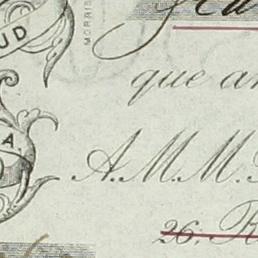 UD
MORRIS
que a
A
A.M.M.
26. R